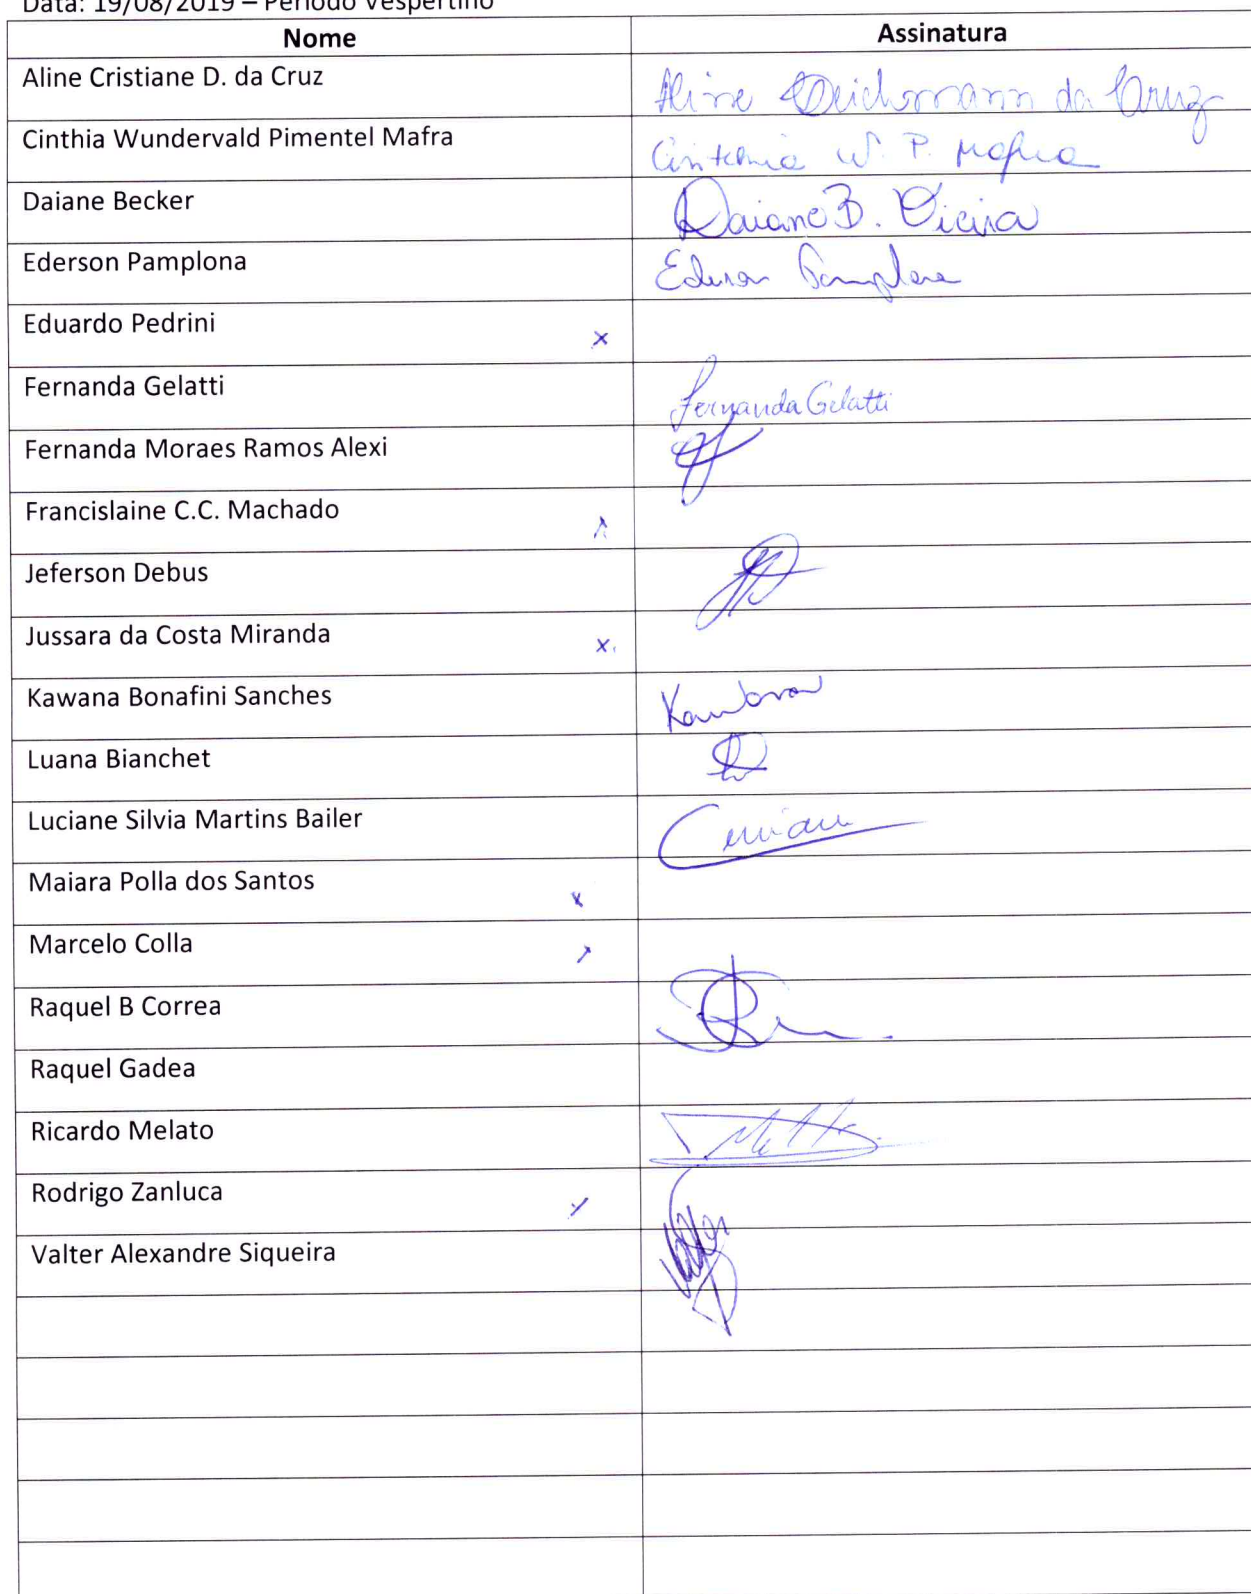 Data: 19/08/2019 – Período Vespertino
Nome Assinatura
Aline Cristiane D. da Cruz Aline Deichmann da Cruz
Cinthia Wundervald Pimentel Mafra Cinthia W. P. Mafra
Daiane Becker Daiane B. Vieira
Ederson Pamplona Ederson Pamplona
Eduardo Pedrini x
Fernanda Gelatti Fernanda Gelatti
Fernanda Moraes Ramos Alexi
Francislaine C.C. Machado
Jeferson Debus
Jussara da Costa Miranda x
Kawana Bonafini Sanches
Luana Bianchet
Luciane Silvia Martins Bailer
Maiara Polla dos Santos x
Marcelo Colla
Raquel B Correa
Raquel Gadea
Ricardo Melato
Rodrigo Zanluca
Valter Alexandre Siqueira